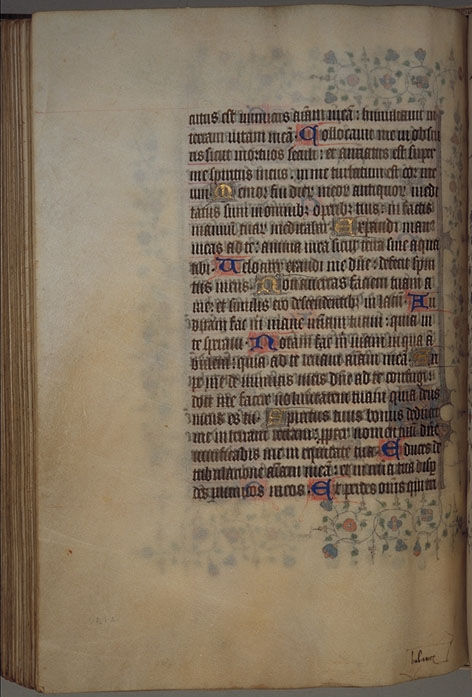 cutus est inimicus aīam meā : humiliauit in
terram uitam meā. Collocauit me in obscu
ris sicut mortuos seculi : et anxiatus est super
me spiritus meus. in me turbatum est cor me
um. Memor fui dierꝝ meorꝝ antiquorꝝ medi
tatus sum in omnibꝫ operibꝫ tuis : in factis
manuū tuarꝝ meditabar. Expandi man⁹
meas ad te : anima mea sicut terra sine aqua
tibi. Velociter exaudi me dñe : defecit spiri
tus meus. Non auertas faciem tuam a
me : et similis ero descendentibꝫ in lacū. Au
ditam fac m̄ mane mīam tuam : quia in
te speraui. Notam fac m̄ uiam in qua ā
bulem : quia ad te leuaui aīam meā. E
ripe me de inimicis meis dñe ad te confugi :
doce me facere uolūtatem tuam quia deus
meus es tu. Spiritus tuus bonus deducet
me in terram rectam : propter nomen tuū dñe
uiuificabis me in equitate tua. Educes de
tribulatione aīam meā : et in mīa tua disp
des inimicos meos. Et perdes omīs qui